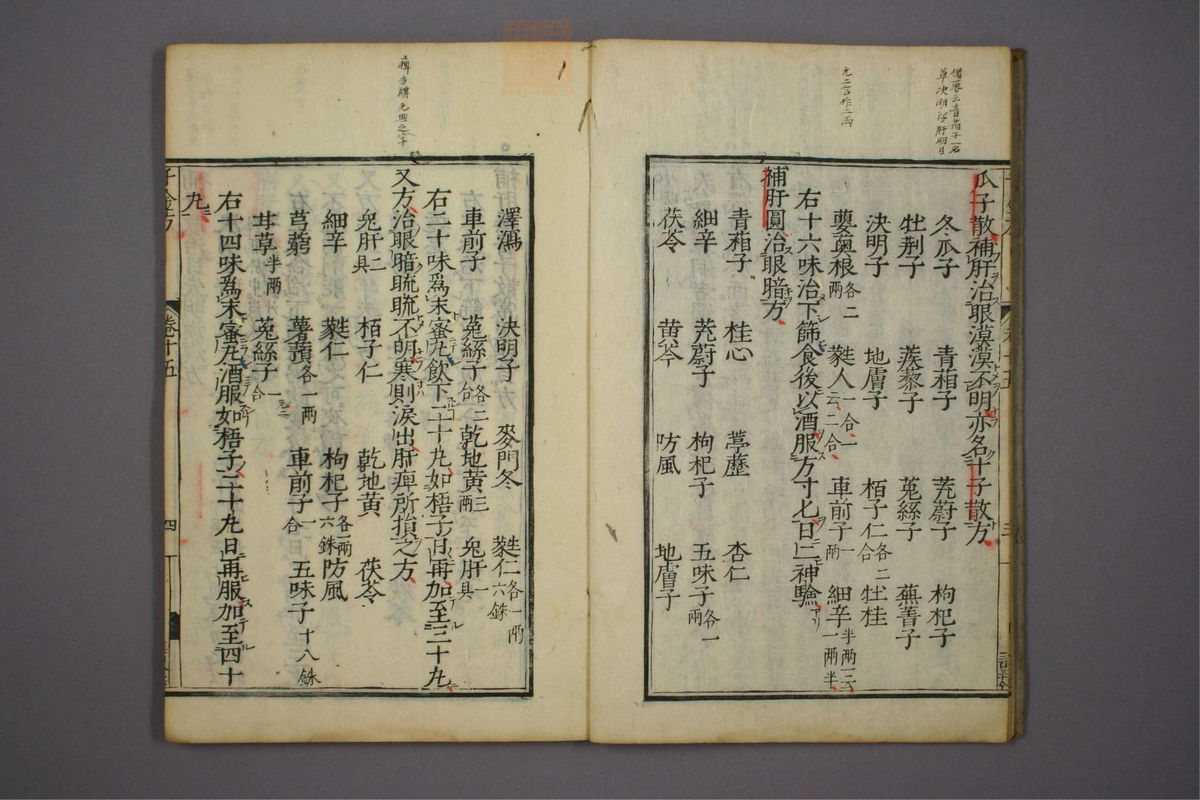 瓜子散補肝治眼漠漠不明亦名十子散方
冬瓜子 青葙子 茺蔚子 枸杞子
牡荆子 蒺蔾子 菟絲子 蕪菁子
決明子 地膚子 栢子仁各二合 牡桂
蘡薁根各二兩 蕤人一合一云二合 車前子一兩 細辛半兩一云一兩半
右十六味治下篩食後以酒服方寸匕日二神驗
補肝圓治眼暗方
青葙子 桂心 葶藶 杏仁
細辛 茺蔚子 枸杞子 五味子各一兩
茯苓 黄芩 防風 地膚子
澤瀉 決明子 麥門冬 蕤仁各一兩六銖
車前子 菟絲子各二合 乾地黄三兩 兔肝一具
右二十味爲末蜜丸飲下二十丸如梧子日再加至三十丸
又方治眼暗䀮䀮不明寒則淚出肝痺所損之方
兔肝二具 栢子仁 乾地黄 茯苓
細辛 蕤仁 枸杞子各一兩六銖 防風
芎藭 薯蕷各一兩 車前子一合 五味子十八銖
甘草半兩 菟絲子一合
右十四味爲末蜜丸酒服如梧子二十丸日再服加至四十
丸
卷十五
四
元二合作二兩
草決明 益肝明目